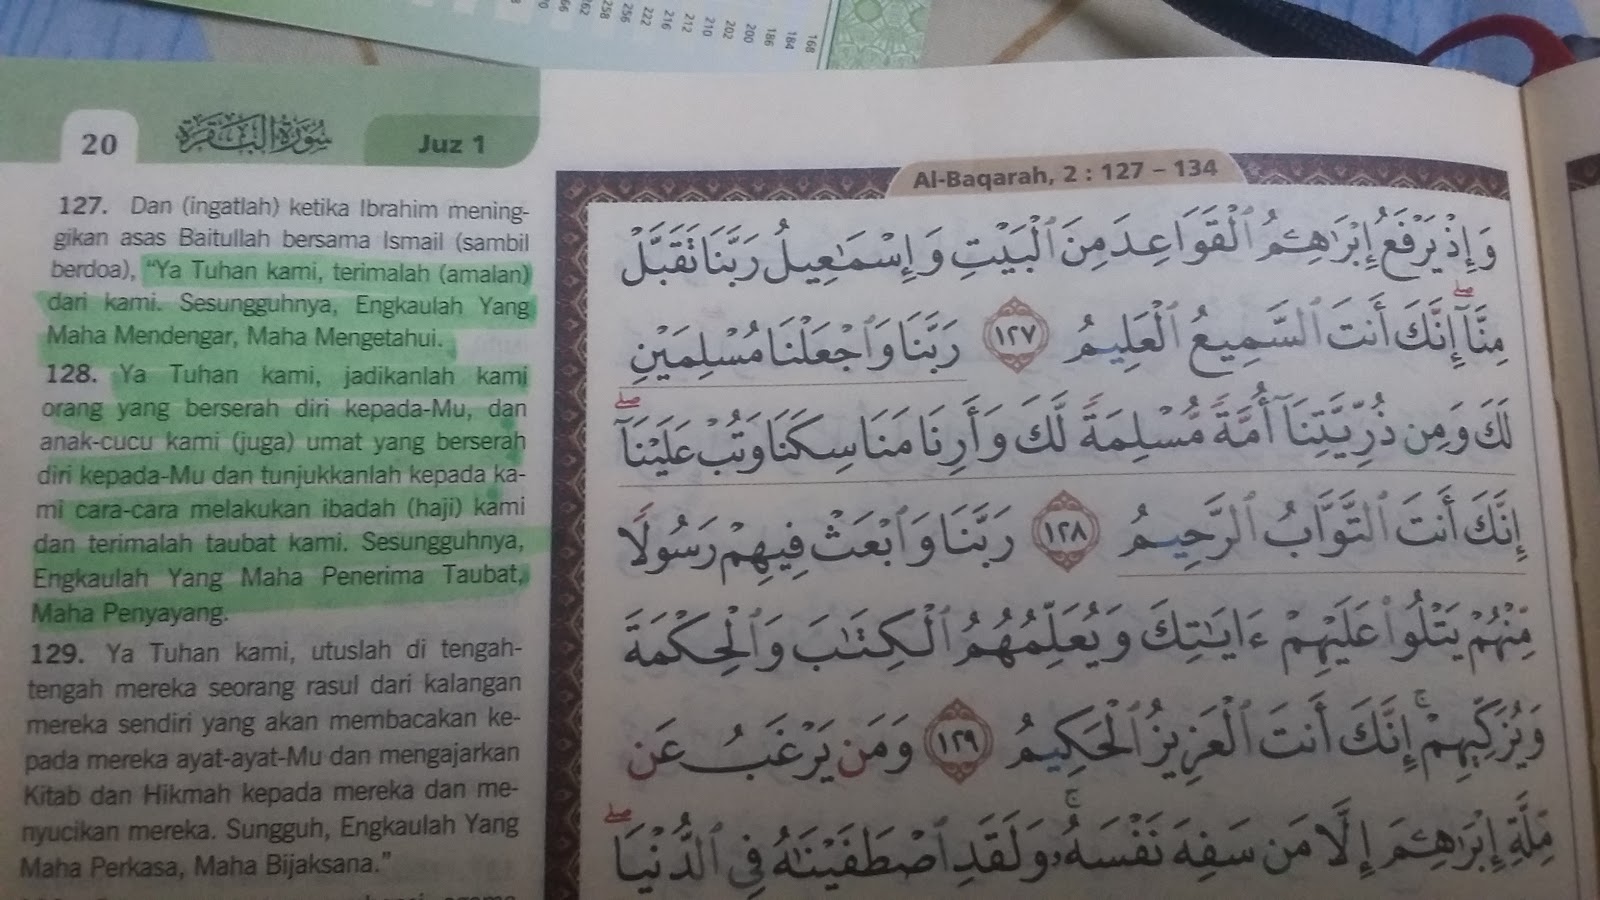 168
184
186
200
202
210
212
216
222
256
258
262
66
70
20
سُورَةُ البَقَرَةِ
Juz 1
127. Dan (ingatlah) ketika Ibrahim mening-
gikan asas Baitullah bersama Ismail (sambil
berdoa), “Ya Tuhan kami, terimalah (amalan)
dari kami. Sesungguhnya, Engkaulah Yang
Maha Mendengar, Maha Mengetahui.
128. Ya Tuhan kami, jadikanlah kami
orang yang berserah diri kepada-Mu, dan
anak-cucu kami (juga) umat yang berserah
diri kepada-Mu dan tunjukkanlah kepada ka-
mi cara-cara melakukan ibadah (haji) kami
dan terimalah taubat kami. Sesungguhnya,
Engkaulah Yang Maha Penerima Taubat,
Maha Penyayang.
129. Ya Tuhan kami, utuslah di tengah-
tengah mereka seorang rasul dari kalangan
mereka sendiri yang akan membacakan ke-
pada mereka ayat-ayat-Mu dan mengajarkan
Kitab dan Hikmah kepada mereka dan me-
nyucikan mereka. Sungguh, Engkaulah Yang
Maha Perkasa, Maha Bijaksana.”
Al-Baqarah, 2 : 127 – 134
وَإِذْ يَرْفَعُ إِبْرَٰهِـۧمُ ٱلْقَوَاعِدَ مِنَ ٱلْبَيْتِ وَإِسْمَٰعِيلُ رَبَّنَا تَقَبَّلْ
مِنَّآ ۖ إِنَّكَ أَنتَ ٱلسَّمِيعُ ٱلْعَلِيمُ ١٢٧ رَبَّنَا وَٱجْعَلْنَا مُسْلِمَيْنِ
لَكَ وَمِن ذُرِّيَّتِنَآ أُمَّةً مُّسْلِمَةً لَّكَ وَأَرِنَا مَنَاسِكَنَا وَتُبْ عَلَيْنَآ ۖ
إِنَّكَ أَنتَ ٱلتَّوَّابُ ٱلرَّحِيمُ ١٢٨ رَبَّنَا وَٱبْعَثْ فِيهِمْ رَسُولًا
مِّنْهُمْ يَتْلُوا۟ عَلَيْهِمْ ءَايَٰتِكَ وَيُعَلِّمُهُمُ ٱلْكِتَٰبَ وَٱلْحِكْمَةَ
وَيُزَكِّيهِمْ ۚ إِنَّكَ أَنتَ ٱلْعَزِيزُ ٱلْحَكِيمُ ١٢٩ وَمَن يَرْغَبُ عَن
مِّلَّةِ إِبْرَٰهِـۧمَ إِلَّا مَن سَفِهَ نَفْسَهُۥ ۚ وَلَقَدِ ٱصْطَفَيْنَٰهُ فِى ٱلدُّنْيَا ۖ